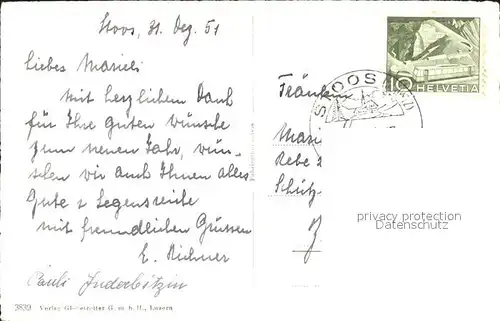 Stoos, 31. Dez. 51
Liebes Marieli
Mit herzlichem Dank
für Ihre guten Wünsche
zum neuen Jahr, wün-
schen wir auch Ihnen alles
Gute & Segensreiche
mit freundlichen Grüssen
E. Richner
Pauli Inderbitzin
3839 Verlag Globetrotter G. m. b. H., Luzern
10 HELVETIA
STOOS
Fräulein
Marie
Rebe
Schütz
Z
privacy protection
Datenschutz